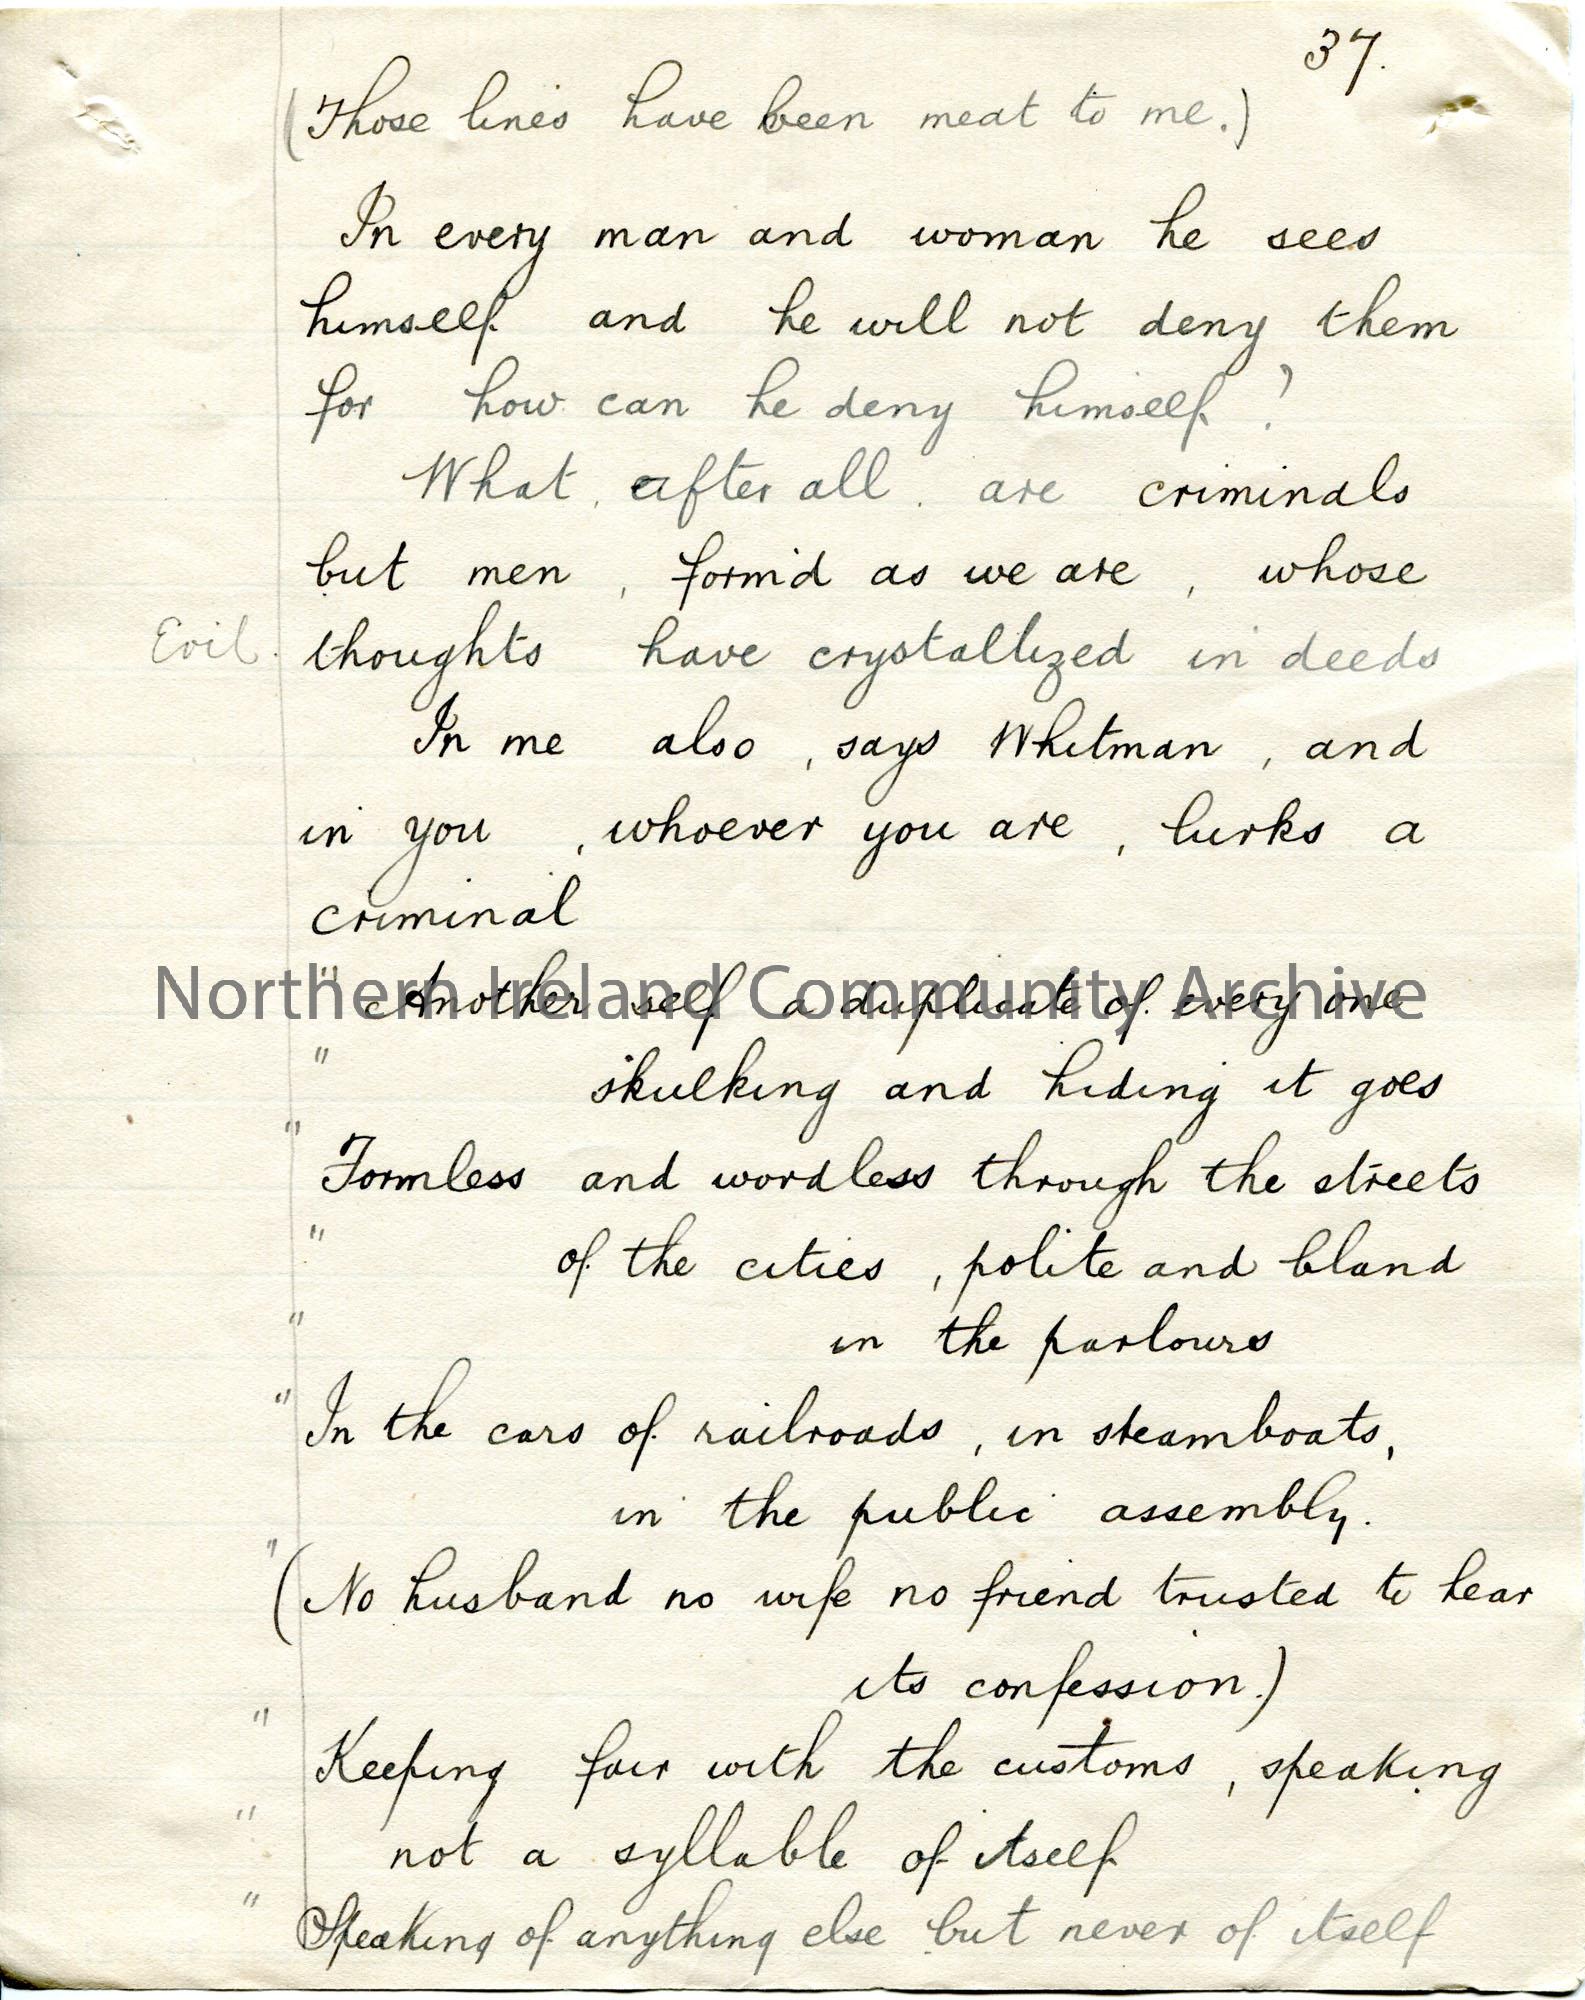 37.
(Those lines have been meat to me.)
In every man and woman he sees
himself and he will not deny them
for how can he deny himself?
What, after all, are criminals
but men, form'd as we are, whose
Evil. thoughts have crystallized in deeds
In me also, says Whitman, and
in you, whoever you are, lurks a
criminal
" Another self a duplicate of every one
" skulking and hiding it goes
" Formless and wordless through the streets
" of the cities, polite and bland
" in the parlours
" In the cars of railroads, in steamboats,
in the public assembly.
" (No husband no wife no friend trusted to hear
its confession.)
" Keeping fair with the customs, speaking
" not a syllable of itself
" Speaking of anything else but never of itself
Northern Ireland Community Archive